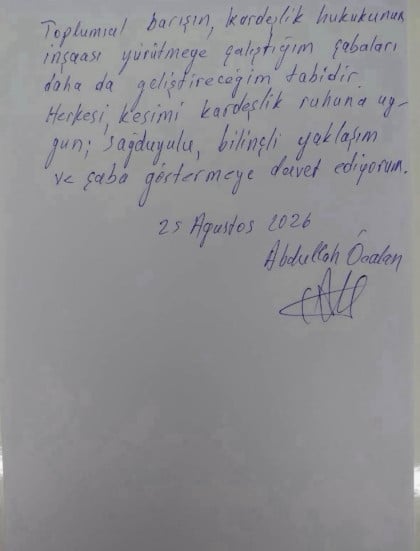 Toplumsal barışın, kardeşlik hukukunun
inşaası yürütmeye çalıştığım çabaları
daha da geliştireceğim tabidir.
Herkesi, kesimi kardeşlik ruhuna uy-
gun; sağduyulu, bilinçli yaklaşım
ve çaba göstermeye davet ediyorum.
25 Ağustos 2026
Abdullah Öcalan